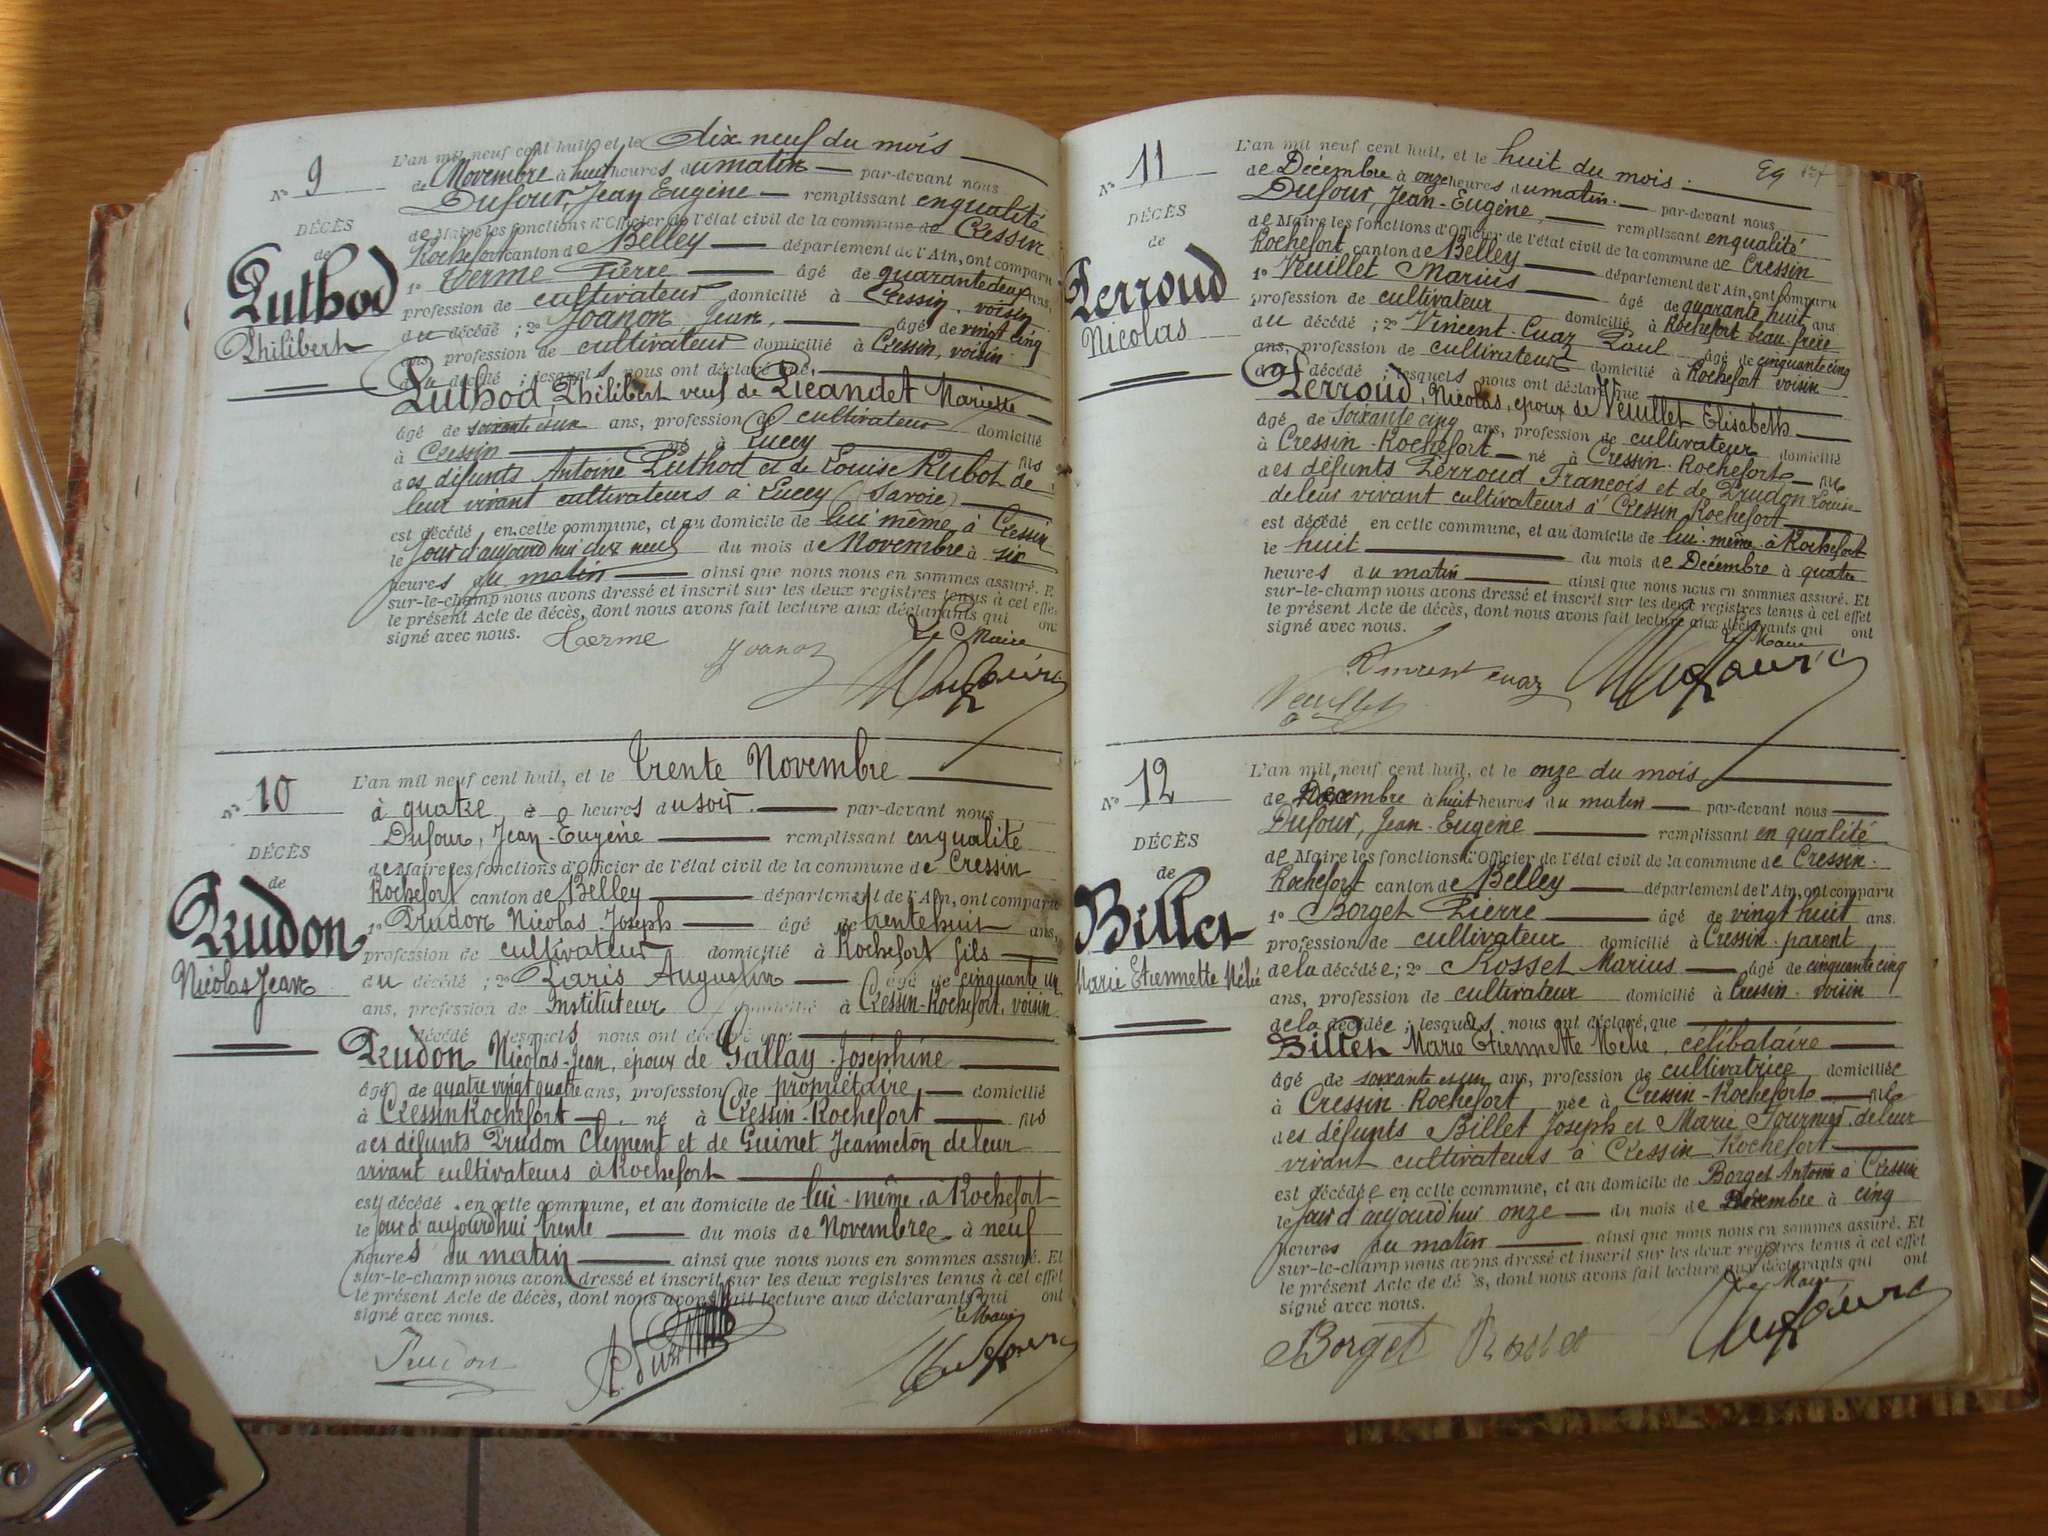 N° 9
DÉCÈS
de
Puthod
Philibert
L'an mil neuf cent huit et le dix neuf du mois
de Novembre à huit heures du matin par-devant nous
Dufour, Jean Eugène remplissant en qualité
de Maire les fonctions d'Officier de l'état civil de la commune de Cressin
Rochefort canton de Belley département de l'Ain, ont comparu
1° Terme Pierre âgé de quarante deux ans,
profession de cultivateur domicilié à Cressin, voisin
du décédé ; 2° Joanon, Jean, âgé de vingt cinq
ans, profession de cultivateur domicilié à Cressin, voisin.
du décédé ; lesquels nous ont déclaré que,
Puthod, Philibert veuf de Picandet Mariette
âgé de soixante et un ans, profession de cultivateur domicilié
à Cressin né à Lucey fils
des défunts Antoine Puthod et de Louise Rubod de
leur vivant cultivateurs à Lucey (Savoie)
est décédé en cette commune, et au domicile de lui même à Cressin
le jour d'aujourd'hui dix neuf du mois de Novembre à six
heures du matin ainsi que nous nous en sommes assuré. E
sur-le-champ nous avons dressé et inscrit sur les deux registres tenus à cet effet
le présent Acte de décès, dont nous avons fait lecture aux déclarants qui ont
signé avec nous.
Le Maire
Terme Joanon
N° 10
DÉCÈS
de
Prudon
Nicolas Jean
L'an mil neuf cent huit, et le trente Novembre
à quatre heures du soir. par-devant nous
Dufour, Jean-Eugène remplissant en qualité
de Maire les fonctions d'Officier de l'état civil de la commune de Cressin
Rochefort canton de Belley département de l'Ain, ont comparu
1° Prudon Nicolas Joseph âgé de trente huit ans,
profession de cultivateur domicilié à Rochefort fils
du décédé ; 2° Paris Augustin âgé de cinquante un
ans, profession de Instituteur domicilié à Cressin-Rochefort, voisin
décédé lesquels nous ont déclaré que
Prudon Nicolas-Jean, époux de Gallay Joséphine
âgé de quatre vingt quatre ans, profession de propriétaire, domicilié
à Cressin Rochefort né à Cressin-Rochefort fils
des défunts Prudon Clément et de Guinet Jeanneton de leur
vivant cultivateurs à Rochefort
est décédé en cette commune, et au domicile de lui-même, à Rochefort
le jour d'aujourd'hui trente du mois de Novembre à neuf
heures du matin ainsi que nous nous en sommes assuré. Et
sur-le-champ nous avons dressé et inscrit sur les deux registres tenus à cet effet
le présent Acte de décès, dont nous avons fait lecture aux déclarants qui ont
signé avec nous.
Le Maire
Prudon
N° 11
DÉCÈS
de
Perroud
Nicolas
L'an mil neuf cent huit, et le huit du mois
de Décembre à onze heures du matin. par-devant nous
Dufour, Jean-Eugène, remplissant en qualité
de Maire les fonctions d'Officier de l'état civil de la commune de Cressin
Rochefort canton de Belley département de l'Ain, ont comparu
1° Veuillet Marius âgé de quarante huit ans
profession de cultivateur domicilié à Rochefort beau-frère
du décédé ; 2° Vincent-Cuaz Paul âgé de cinquante cinq
ans, profession de cultivateur domicilié à Rochefort voisin
du décédé ; lesquels nous ont déclaré que
Perroud, Nicolas, époux de Veuillet Elisabeth
âgé de soixante cinq ans, profession de cultivateur domicilié
à Cressin-Rochefort né à Cressin-Rochefort fils
des défunts Perroud François et de Prudon Louise
de leur vivant cultivateurs à Cressin Rochefort
est décédé en cette commune, et au domicile de lui-même à Rochefort
le huit du mois de Décembre à quatre
heures du matin ainsi que nous nous en sommes assuré. Et
sur-le-champ nous avons dressé et inscrit sur les deux registres tenus à cet effet
le présent Acte de décès, dont nous avons fait lecture aux déclarants qui ont
signé avec nous.
Le Maire
Vincent Cuaz
Veuillet
N° 12
DÉCÈS
de
Billet
Marie Etiennette Mélie
L'an mil neuf cent huit, et le onze du mois
de Décembre à huit heures du matin par-devant nous
Dufour, Jean-Eugène remplissant en qualité
de Maire les fonctions d'Officier de l'état civil de la commune de Cressin.
Rochefort canton de Belley département de l'Ain, ont comparu
1° Borget Pierre âgé de vingt huit ans.
profession de cultivateur domicilié à Cressin. parent
de la décédée ; 2° Rosset Marius âgé de cinquante cinq
ans, profession de cultivateur domicilié à Cressin. voisin
de la décédée ; lesquels nous ont déclaré que
Billet Marie Etiennette Mélie, célibataire
âgé de soixante et un ans, profession de cultivatrice domiciliée
à Cressin-Rochefort née à Cressin-Rochefort fille
des défunts Billet Joseph et Marie Fournier de leur
vivant cultivateurs à Cressin Rochefort
est décédée en cette commune, et au domicile de Borget Antoine à Cressin
le jour d'aujourd'hui onze du mois de Décembre à cinq
heures du matin ainsi que nous nous en sommes assuré. Et
sur-le-champ nous avons dressé et inscrit sur les deux registres tenus à cet effet
le présent Acte de décès, dont nous avons fait lecture aux déclarants qui ont
signé avec nous.
Le Maire
Borget Rosset